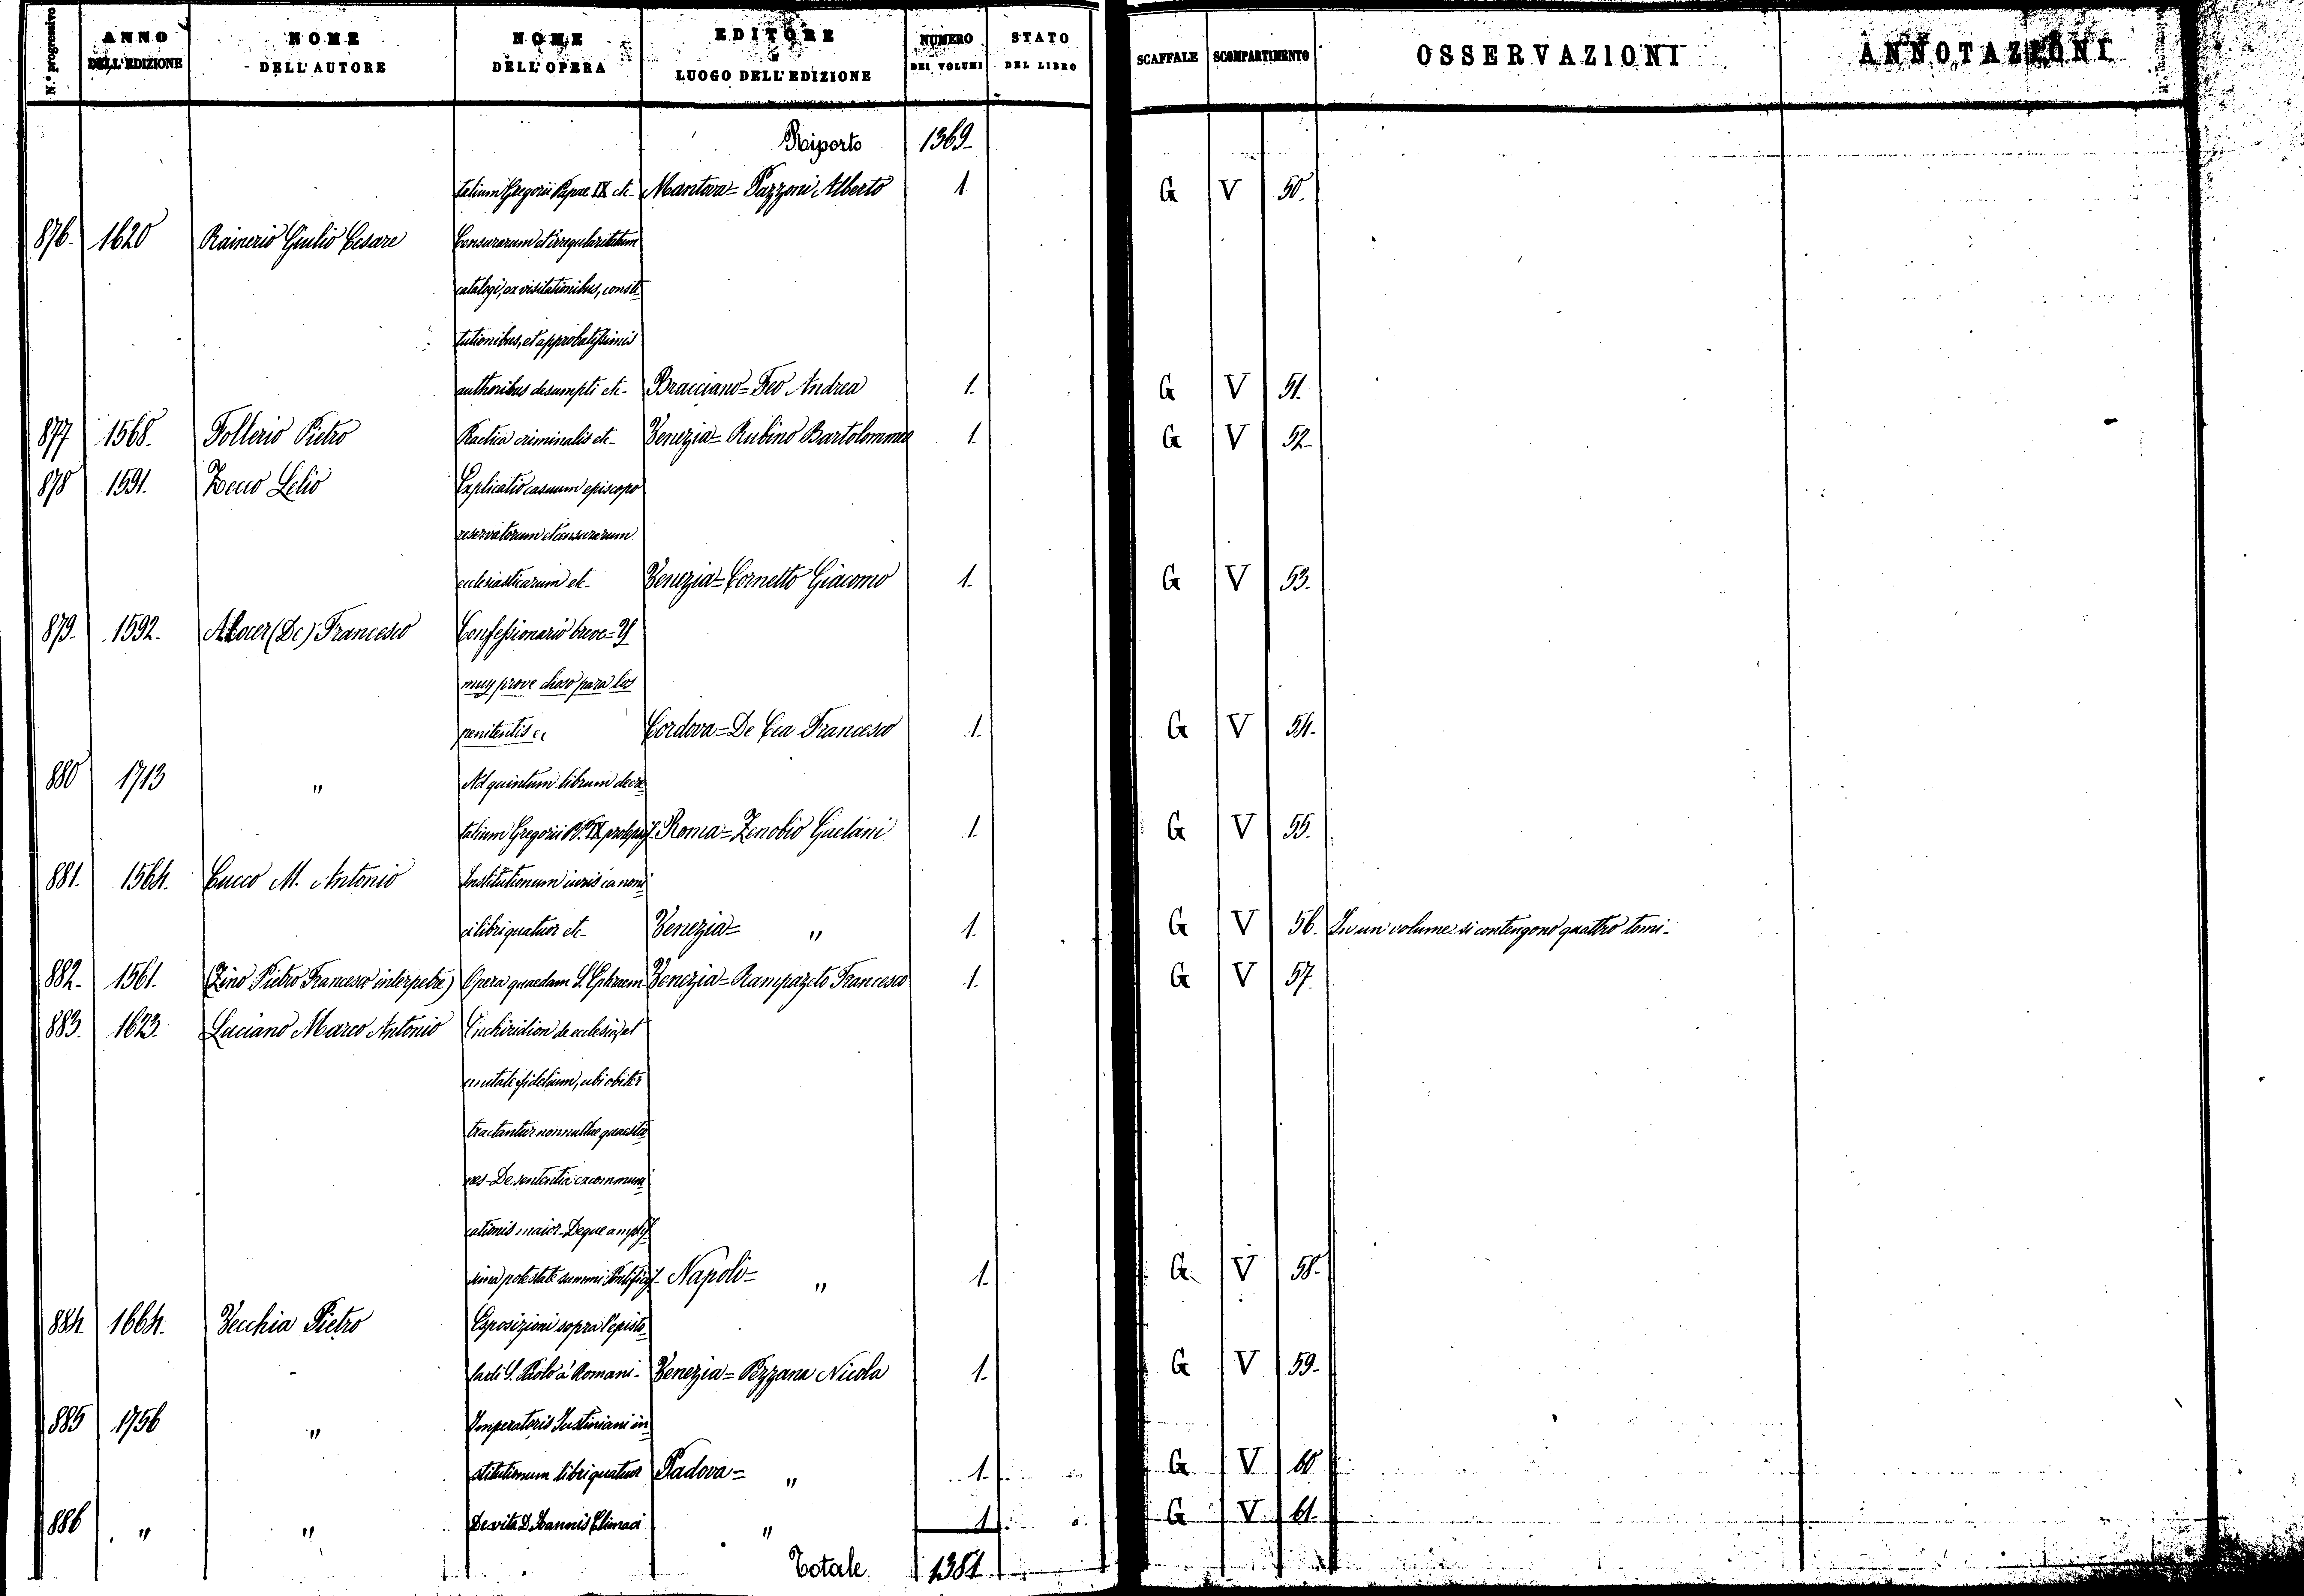 N.° progressivo ANNO DELL'EDIZIONE NOME DELL'AUTORE NOME DELL'OPERA EDITORE LUOGO DELL'EDIZIONE NUMERO DEI VOLUMI STATO DEL LIBRO SCAFFALE SCOMPARTIMENTO OSSERVAZIONI ANNOTAZIONI
Riporto 1369-
talium Gregorii Papae IX etc- Mantova= Pazzoni Alberto 1 G V 50.
876. 1620 Rainerio Giulio Cesare Censurarum et irregularitatum
catalogi, ex visitationibus, consti=
tutionibus, et approbatissimis
authoribus desumpti etc- Bracciano= Feo Andrea 1. G V 51.
877 1568. Follerio Pietro Practica criminalis etc- Venezia= Rubino Bartolommeo 1. G V 52-
878 1591. Zecco Lelio Explicatio casuum episcopo
reservatorum et censurarum
ecclesiasticarum etc- Venezia= Cornetto Giacomo 1. G V 53.
879. 1592. Alocer (De) Francesco Confessionario breve= Y
muy prove choso para los
penitentis Cordova= De Cea Francesco 1. G V 54.
880 1713 " Ad quintum librum decre=
talium Gregorii P.P. IX Roma= Zenobio Gaetani 1. G V 55.
881. 1564. Cucco M. Antonio Institutionum iuris canoni=
ci libri quatuor etc- Venezia= " 1. G V 56. In un volume si contengono quattro tomi-
882- 1561. (Zino Pietro Francesco interpetre) Opera quaedam S. Ephraem Venezia= Rampazeto Francesco 1. G V 57.
883. 1623. Luciano Marco Antonio Enchiridion de ecclesia, et
unitate fidelium, ubi obiter
tractantur nonnullae quaestio=
nes- De sententia excommuni=
cationis maior- Deque amplis=
sima potestate summi Pontificis- Napoli= " 1. G V 58-
884. 1664. Vecchia Pietro Esposizioni sopra l'episto=
la di S. Paolo a' Romani- Venezia= Pezzana Nicola 1. G V 59-
885 1756 " Imperatoris Justiniani in=
stitutionum libri quatuor Padova= " 1. G V 60
886 " " De vita D. Joannis Climaci " 1. G V 61.
Totale. 1381